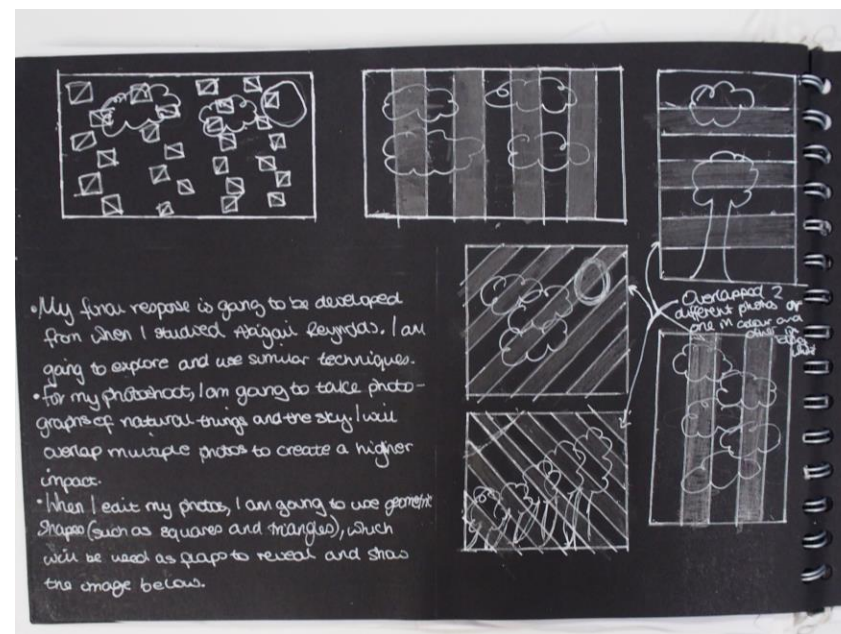 •My final response is going to be developed
from when I studied Abigail Reynolds. I am
going to explore and use similar techniques.
•For my photoshoot, I am going to take photo-
graphs of natural things and the sky. I will
overlap multiple photos to create a higher
impact.
•When I edit my photos, I am going to use geometric
shapes (such as squares and triangles), which
will be used as flaps to reveal and show
the image below.
Overlapped 2
different photos or
one in colour and
other in